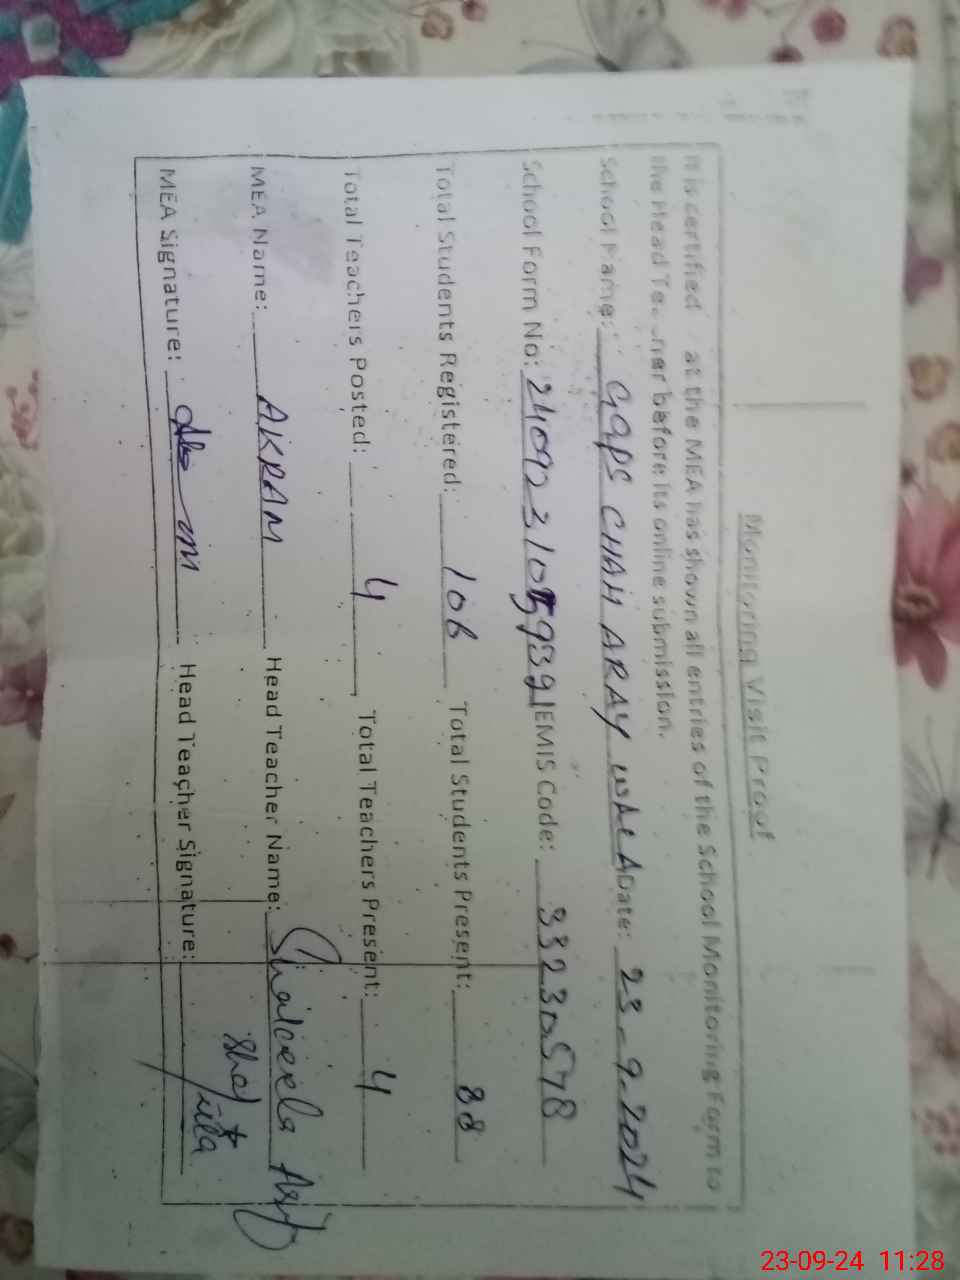 Monitoring Visit Proof
It is certified at the MEA has shown all entries of the School Monitoring Form to
the Head before its online submission.
School Name: GGPS CHAH ARAY Date: 23-9-2024
School Form No: EMIS Code: 33230578
Total Students Registered: 108 Total Students Present: 88
Total Teachers Posted: 4 Total Teachers Present: 4
MEA Name: AKRAM Head Teacher Name: Shakeela
MEA Signature: Head Teacher Signature:
23-09-24 11:28